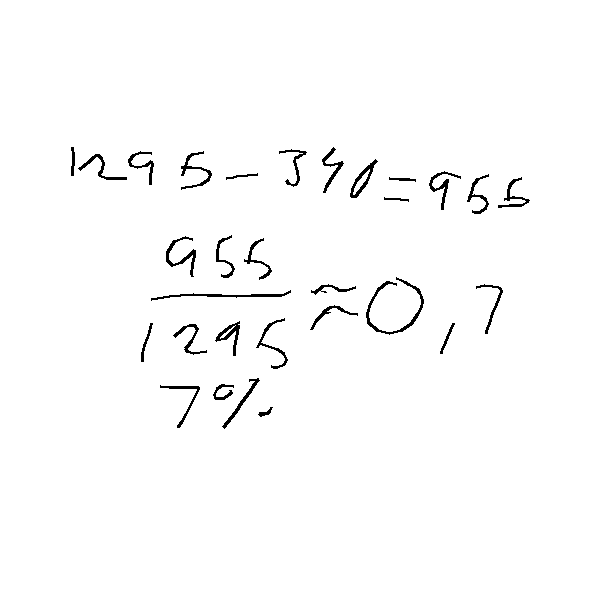 1295-340=955
955
1295 ≈0,7
7%